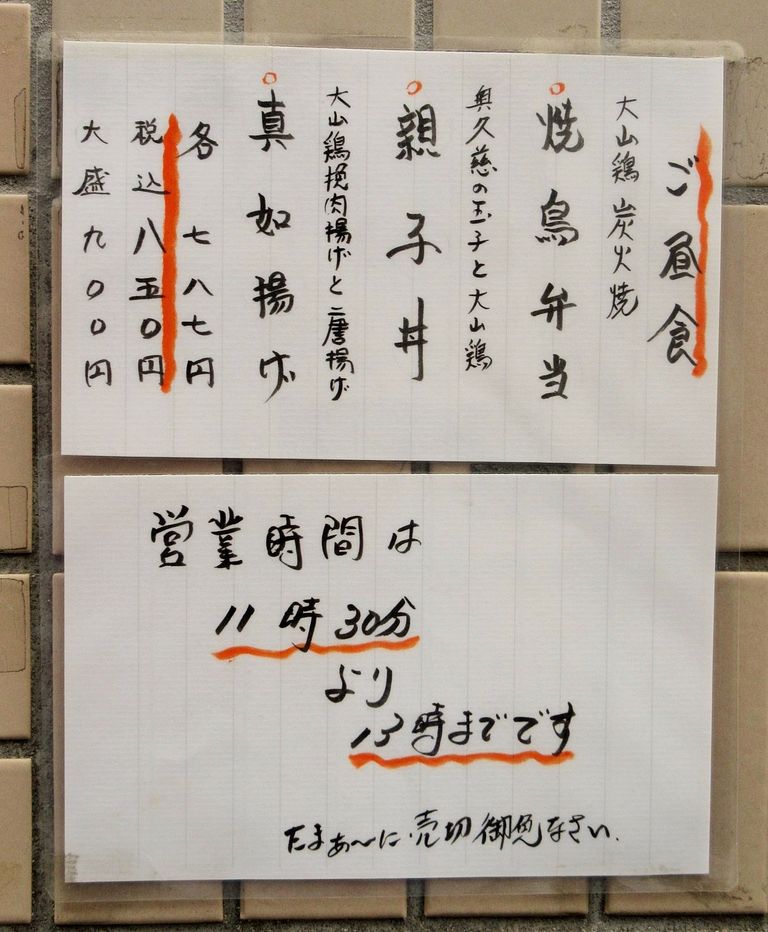 ご昼食
大山鶏 炭火焼
焼鳥弁当
奥久慈の玉子と大山鶏
親子丼
大山鶏挽肉揚げと唐揚げ
真如揚げ
各 七八七円
税込八五〇円
大盛九〇〇円
営業時間は
11時30分
より
13時までです
たまぁ〜に売切御免なさい.